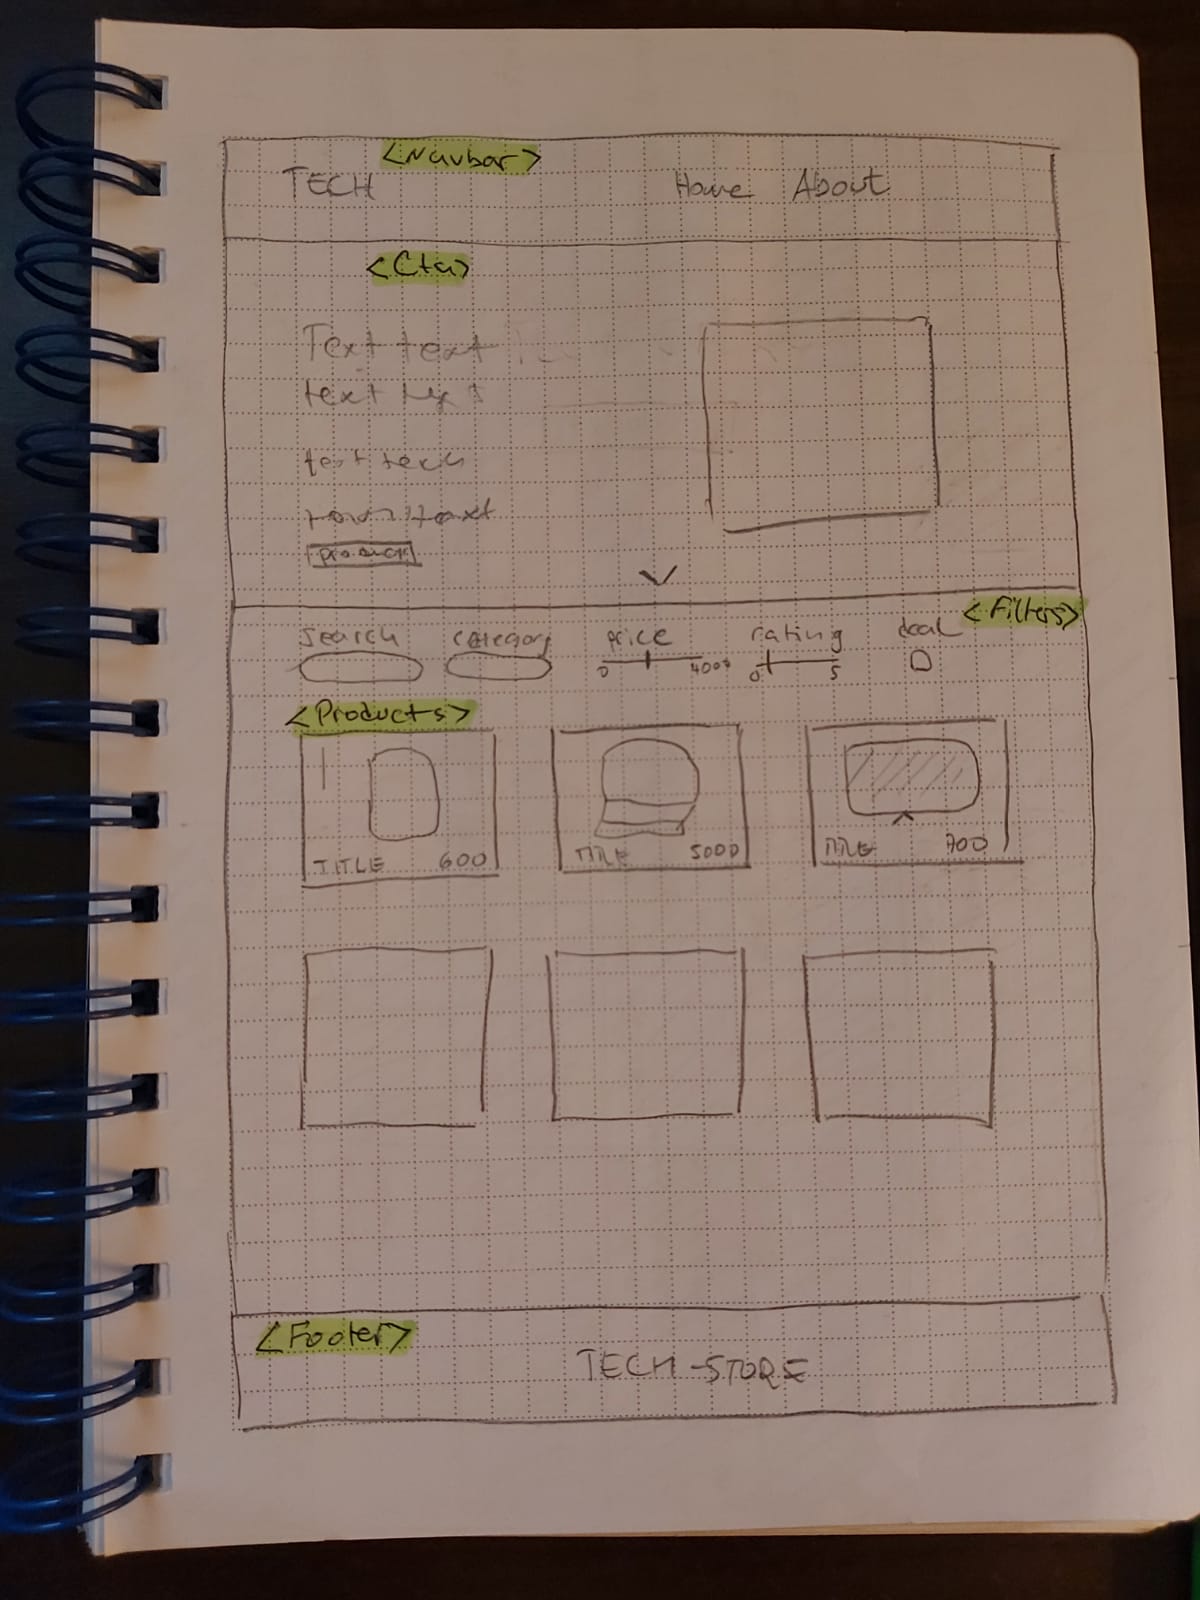 <Navbar>
TECH Home About
<Cta>
Text text
text text
text
text
products
<Filters>
Search category price rating deal
0 4000 0 5
<Products>
TITLE 600 TITLE 5000 TITLE 700
<Footer>
TECH-STORE